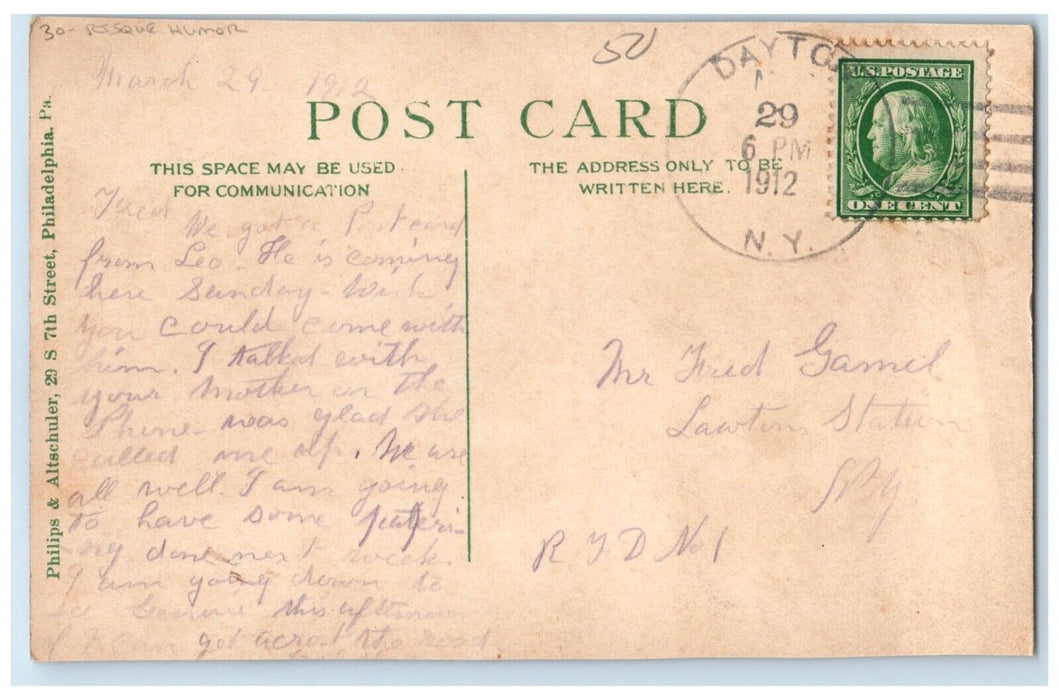 30- RISQUE HUMOR
50
March 29 1912
POST CARD
THIS SPACE MAY BE USED
FOR COMMUNICATION
THE ADDRESS ONLY TO BE
WRITTEN HERE.
DAYTO
29
6 PM
1912
N.Y.
U.S. POSTAGE
ONE CENT
Philips & Altschuler, 29 S 7th Street, Philadelphia. Pa.
Fred
We got a Post card
from Leo. He is coming
here Sunday - Wish
you could come with
him. I talked with
your Mother on the
Phone - was glad she
called me up. We are
all well. I am going
to have some paperi-
ng done next week.
I am going down to
see this afternoon
if I can get acrost the road
Mr Fred Gamel
Lawtons Station
N.Y.
R F D No 1